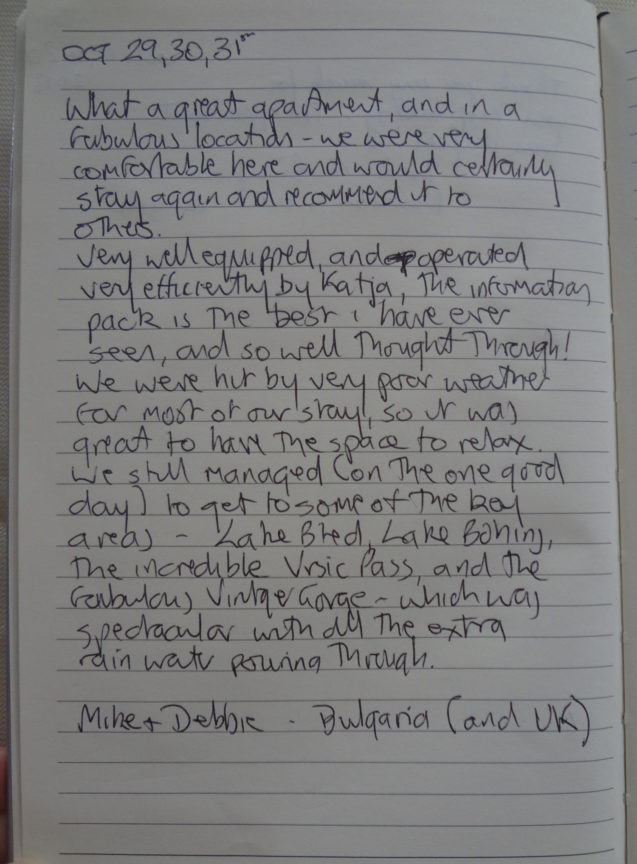 Oct 29, 30, 31st
What a great apartment, and in a
fabulous location - we were very
comfortable here and would certainly
stay again and recommend it to
others.
Very well equipped, and operated
very efficiently by Katja, The information
pack is The best i have ever
seen, and so well Thought Through!
We were hit by very poor weather
for most of our stay, so it was
great to have The space to relax.
We still managed (on The one good
day) to get to some of The key
areas - Lake Bled, Lake Bohinj,
The incredible Vrsic Pass, and The
fabulous Vintgar Gorge - which was
spectacular with all The extra
rain water pouring Through.
Mike + Debbie - Bulgaria (and UK)